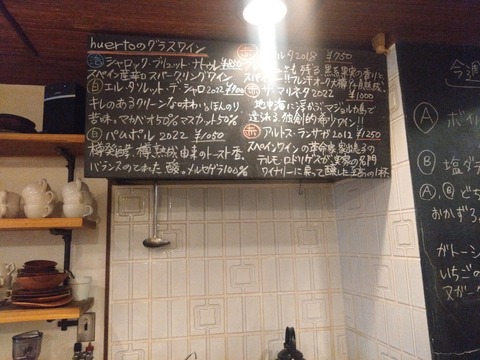 huertoのグラスワイン
泡 シャロック・ブリュット・ナトゥレ ¥850
スペイン産辛口スパークリングワイン
白 エル・タソレット・デ・シャロ 2022 ¥900
キレのあるクリーンな味わい&ほんのり
苦味。マカベオ50% マスカット50%
白 パムポル 2022 ¥1050
樽発酵、樽熟成由来のトースト香。
バランスのとれた酸。メルセゲラ100%
赤 2018 ¥950
残る黒い果実の香りと
赤 サ・マリネタ 2022 ¥1000
地中海に浮かぶマジョルカ島で
造られる独創的赤ワイン!!
赤 アルトス・ランサガ 2012 ¥1250
スペインワインの革命家
テルモ・ロドリゲスが実家の名門
ワイナリーに戻って醸した至高の1杯
今週
A ポイ
B 塩ダラ
A、B どち
おかずる
ガトーシ
いちごの
又はグ